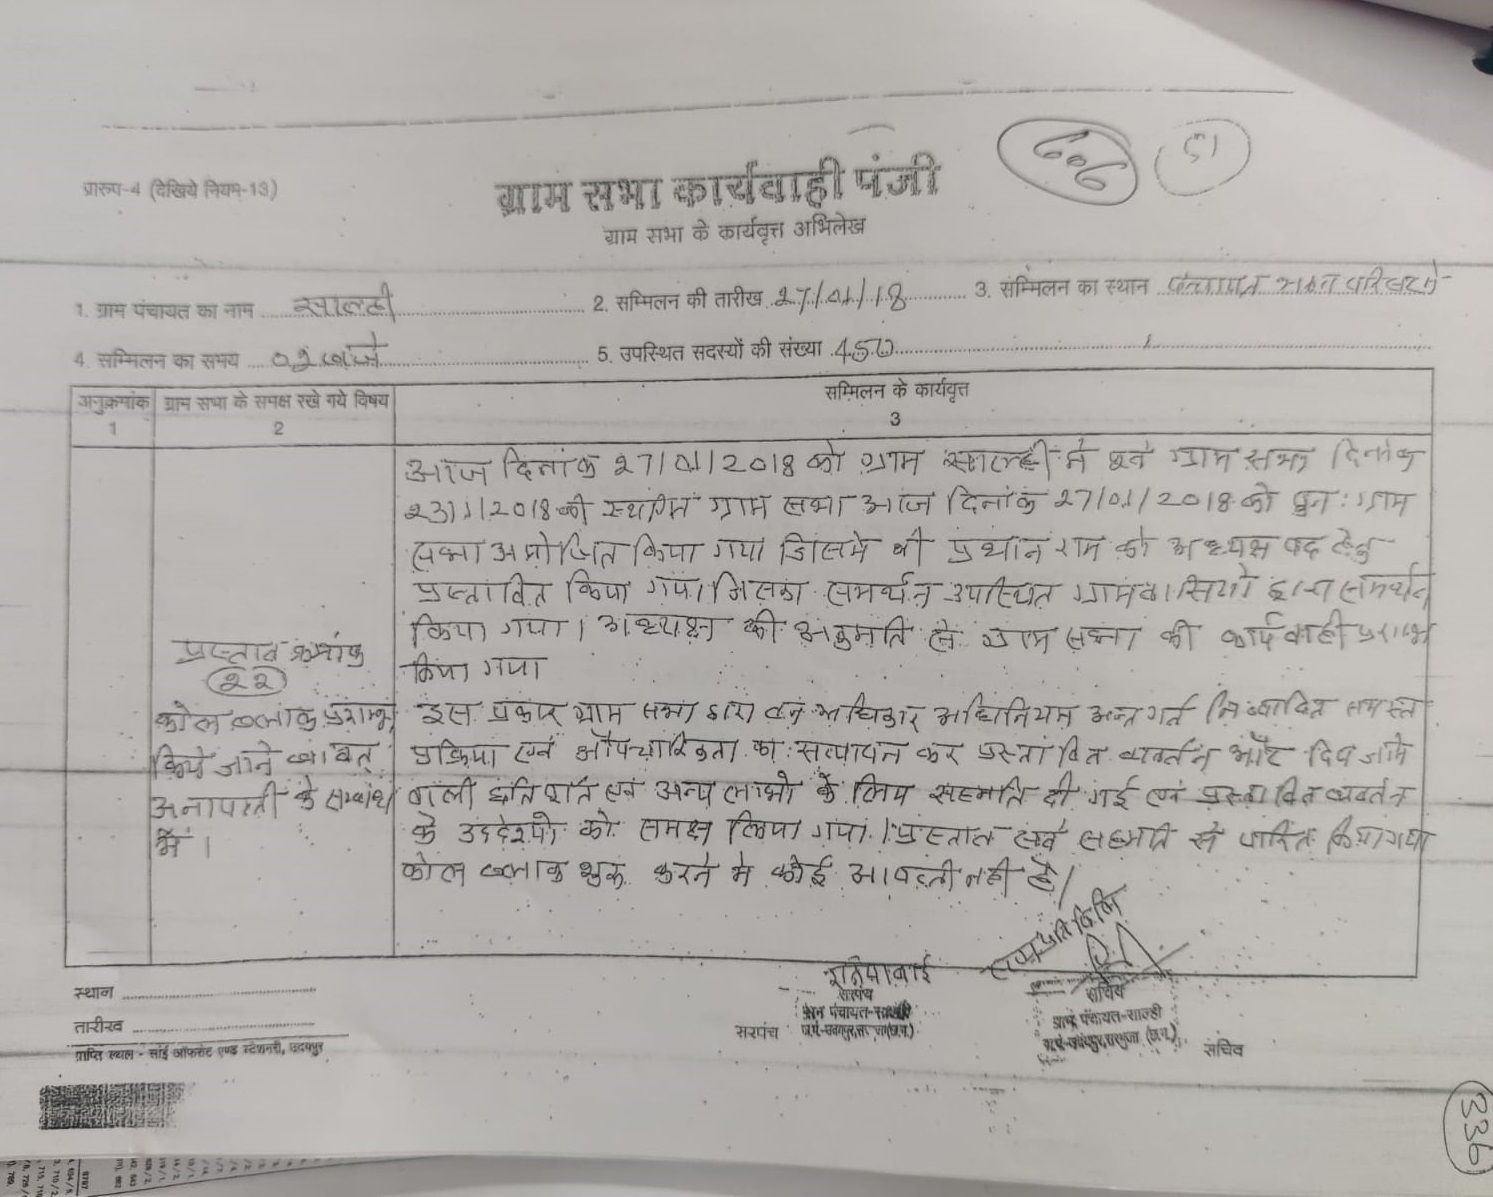 606
51
प्रारूप-4 (देखिये नियम-13)
ग्राम सभा कार्यवाही पंजी
ग्राम सभा के कार्यवृत्त अभिलेख
1. ग्राम पंचायत का नाम साल्ही 2. सम्मिलन की तारीख 27/01/18 3. सम्मिलन का स्थान पंचायत भवन परिसर में
4. सम्मिलन का समय 02 बजे 5. उपस्थित सदस्यों की संख्या 450
अनुक्रमांक ग्राम सभा के समक्ष रखे गये विषय सम्मिलन के कार्यवृत्त
1 2 3
प्रस्ताव क्रमांक
22
कोल ब्लाक प्रारम्भ
किये जाने बाबत्
अनापत्ती के सम्बंध
में ।
आज दिनांक 27/01/2018 को ग्राम साल्ही में ग्राम सभा दिनांक
23/1/2018 की स्थगित ग्राम सभा आज दिनांक 27/01/2018 को पुनः ग्राम
सभा आयोजित किया गया जिसमे श्री प्रधान राम को अध्यक्ष पद हेतु
प्रस्तावित किया गया। जिसका समर्थन उपस्थित ग्रामवासियो द्वारा समर्थन
किया गया। अध्यक्ष की अनुमति से ग्राम सभा की कार्यवाही प्रारम्भ
किया गया
इस प्रकार ग्राम सभा द्वारा वन अधिकार अधिनियम अन्तर्गत निष्पादित समस्त
प्रक्रिया एवं औपचारिकता का सत्यापन कर प्रस्तावित व्यवर्तन और दिये जाने
वाली क्षतिपूर्ति एवं अन्य लाभो के लिये सहमति दी गई एवं प्रस्तावित व्यवर्तन
के उददेश्यो को समक्ष लिया गया। प्रस्ताव सर्व सहमति से पारित किया गया
कोल ब्लाक शुरू करने मे कोई आपत्ती नही है।
सत्य प्रतिलिपि
स्थान
तारीख
प्राप्ति स्थल - साई ऑफसेट एण्ड स्टेशनरी, उदयपुर
सरपंच
ग्राम पंचायत-साल्ही
सरपंच
सचिव
ग्राम पंचायत-साल्ही
सचिव
336